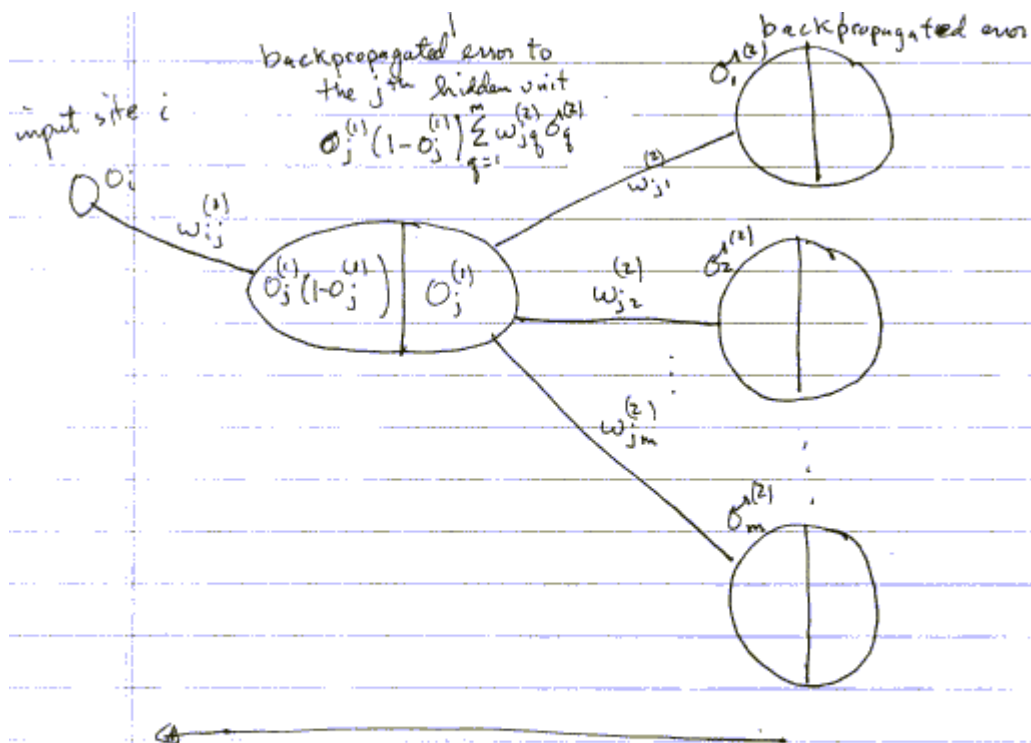 backpropagated error to
the jth hidden unit
O_j^(1) (1-O_j^(1)) Σ_{q=1}^{m} w_{jq}^(2) δ_q^(2)
backpropagated error
input site i
O_i
w_{ij}^(1)
O_j^(1) (1-O_j^(1))
O_j^(1)
w_{j1}^(2)
w_{j2}^(2)
w_{jm}^(2)
δ_1^(2)
δ_2^(2)
δ_m^(2)